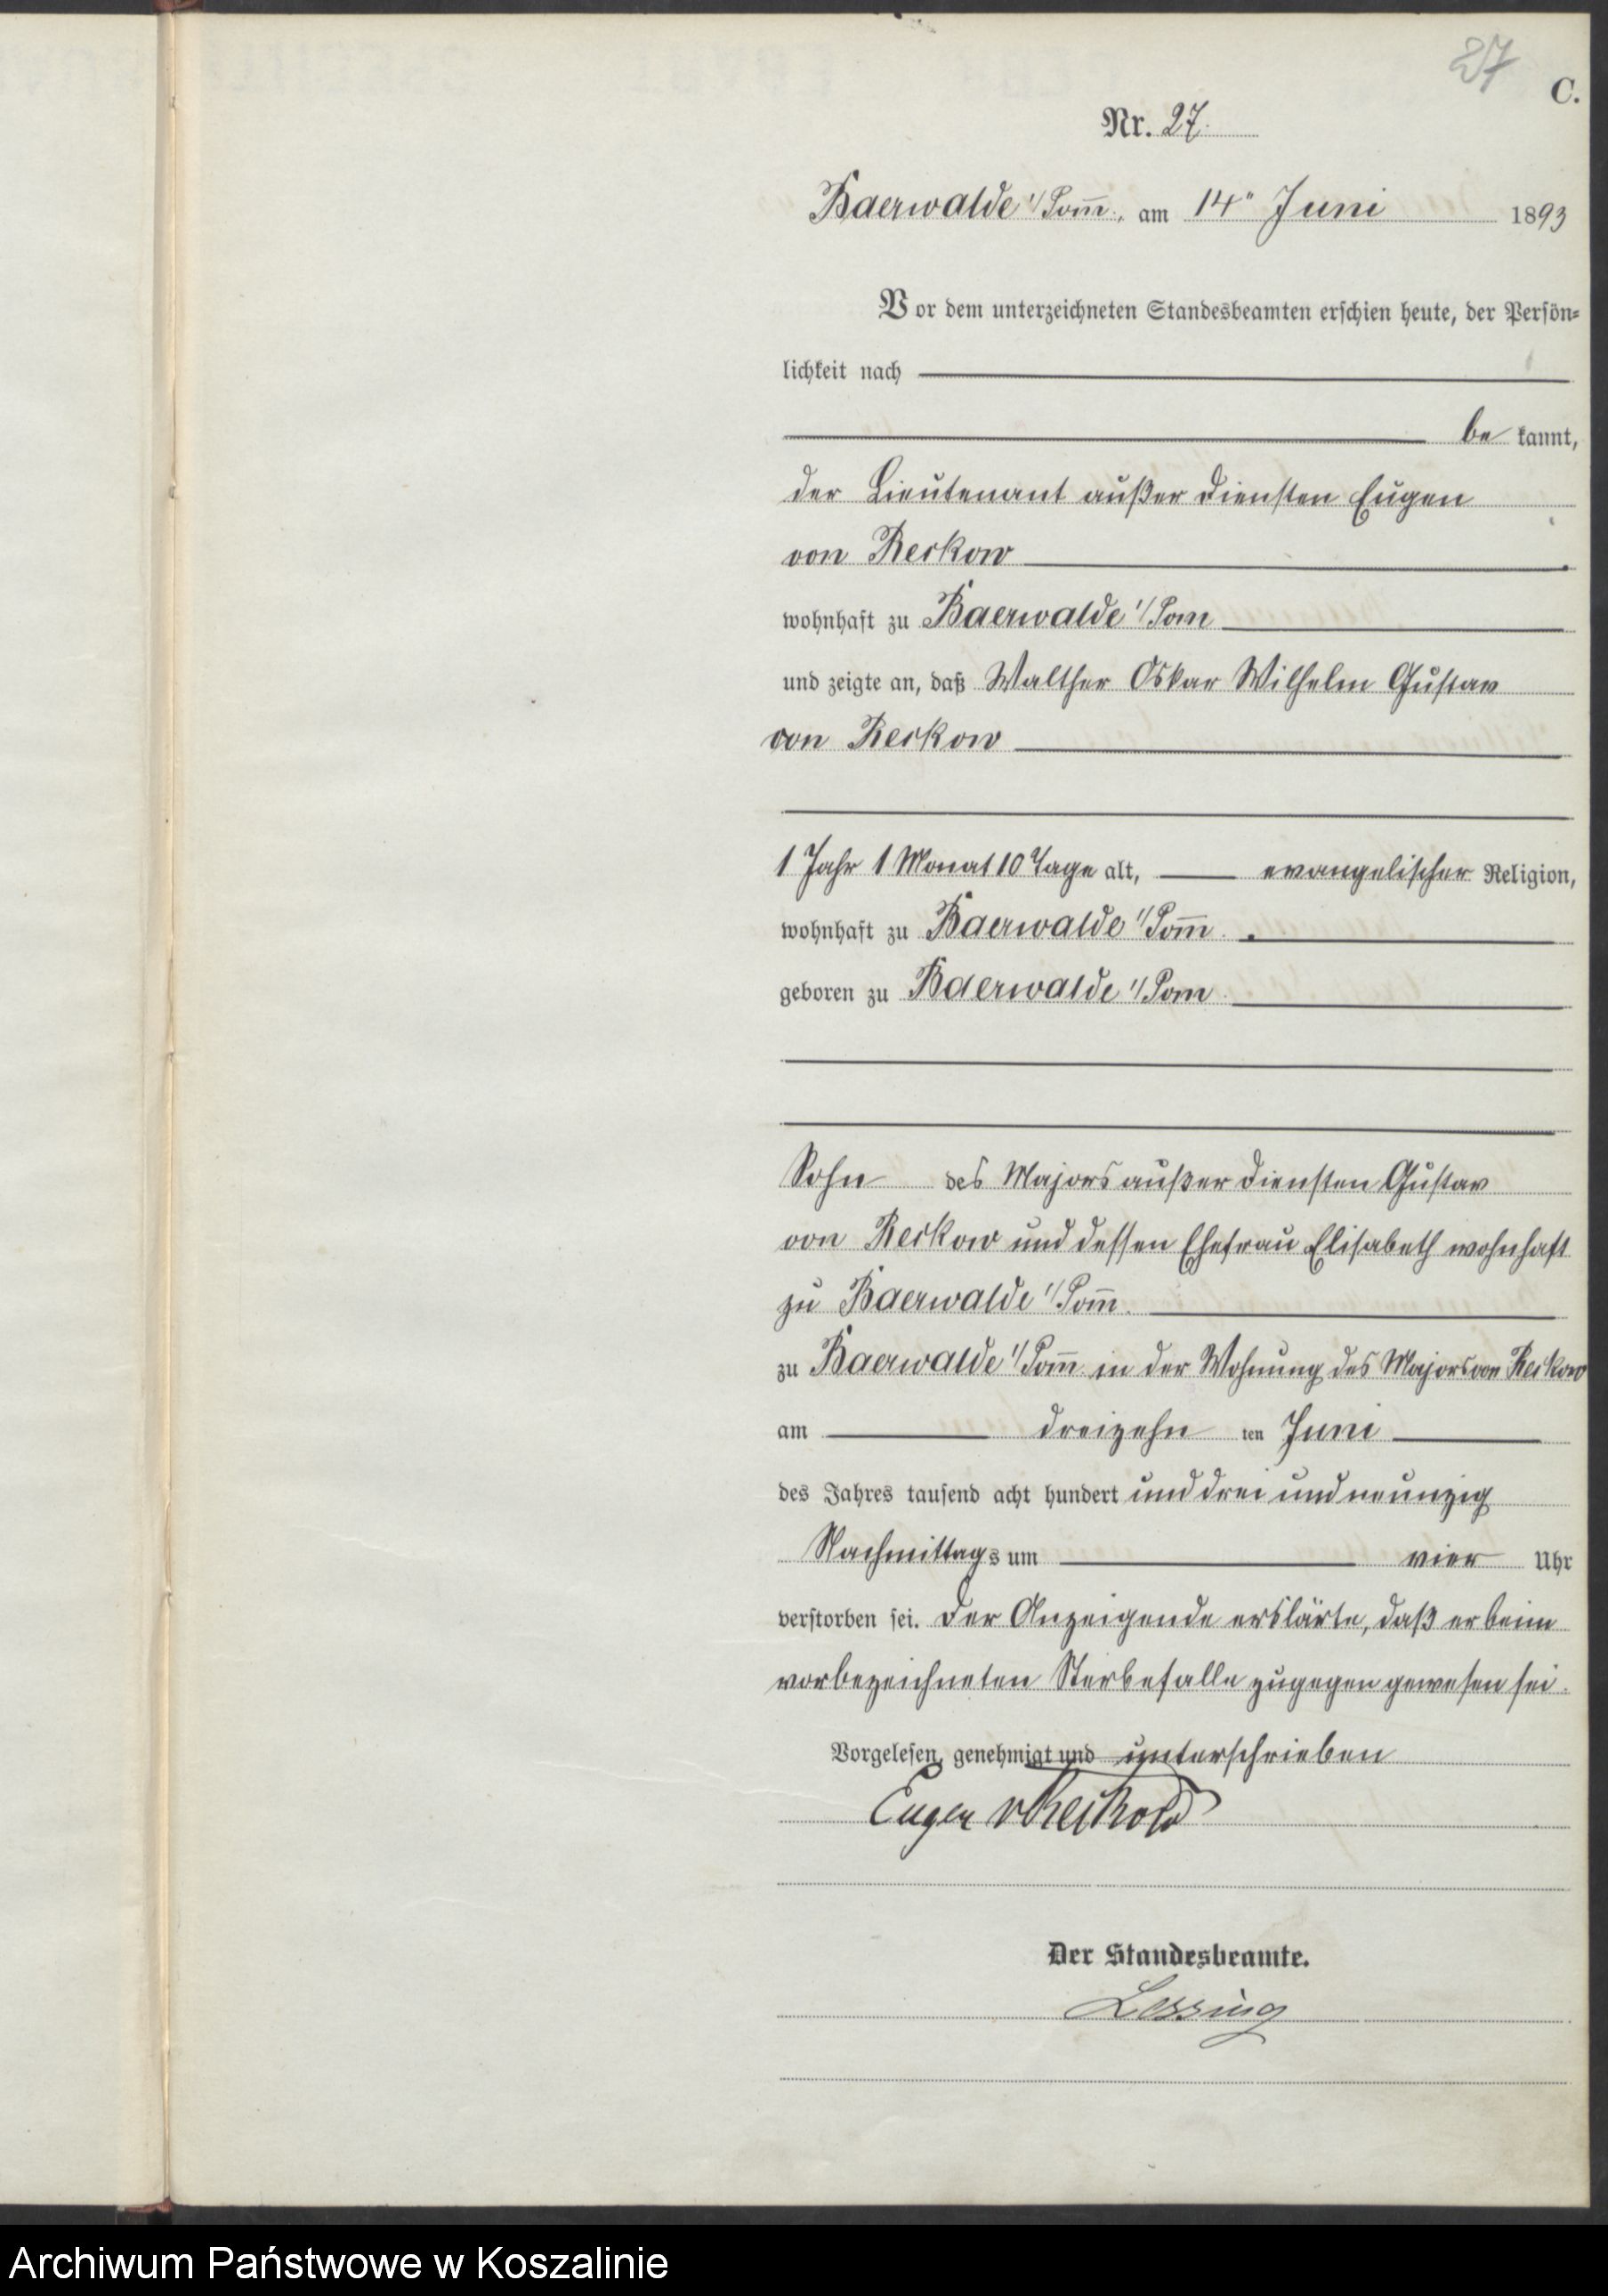 27
C.
Nr. 27.
Baerwalde i/Pom̅., am 14ᵗ Juni 1893
Vor dem unterzeichneten Standesbeamten erschien heute, der Persön-
lichkeit nach
be kannt,
der Lieutenant außer Diensten Eugen
von Reckow
wohnhaft zu Baerwalde i/Pom
und zeigte an, daß Walther Oskar Wilhelm Gustav
von Reckow
1 Jahr 1 Monat 10 Tage alt, evangelischer Religion,
wohnhaft zu Baerwalde i/Pom̅.
geboren zu Baerwalde i/Pom
Sohn des Majors außer Diensten Gustav
von Reckow und dessen Ehefrau Elisabeth wohnhaft
zu Baerwalde i/Pom̅.
zu Baerwalde i/Pom̅ in der Wohnung des Majors von Reckow
am dreizehn ten Juni
des Jahres tausend acht hundert und drei und neunzig
Nachmittags um vier Uhr
verstorben sei. Der Anzeigende erklärte, daß er beim
vorbezeichneten Sterbefalle zugegen gewesen sei.
Vorgelesen, genehmigt und unterschrieben
Eugen v Reckow
Der Standesbeamte.
Lessing
Archiwum Państwowe w Koszalinie